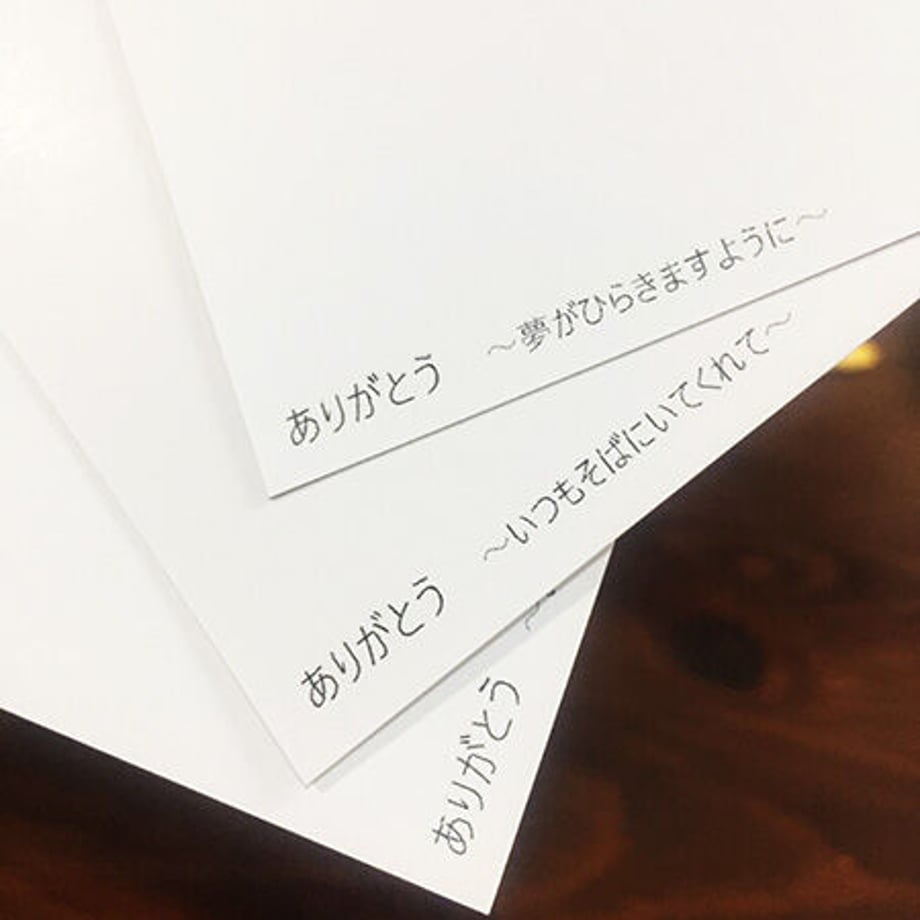 ありがとう　〜夢がひらきますように〜
ありがとう　〜いつもそばにいてくれて〜
ありがとう　〜